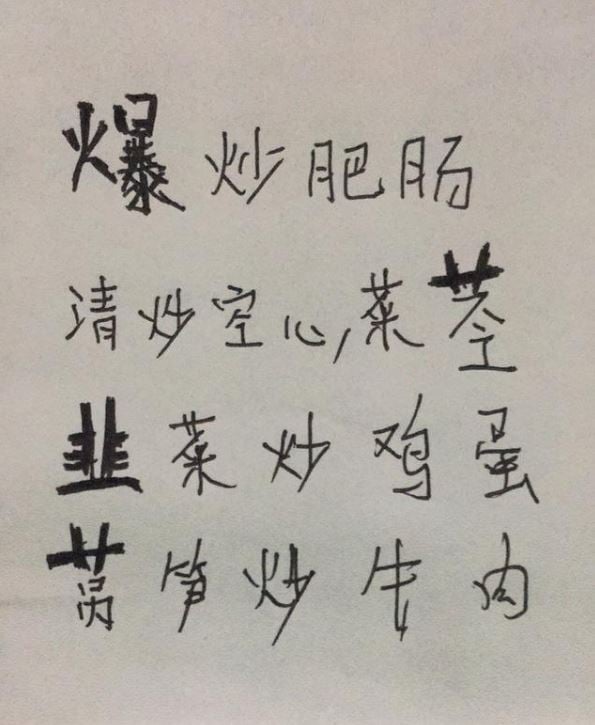 爆炒肥肠
清炒空心菜茎
韭菜炒鸡蛋
莴笋炒牛肉